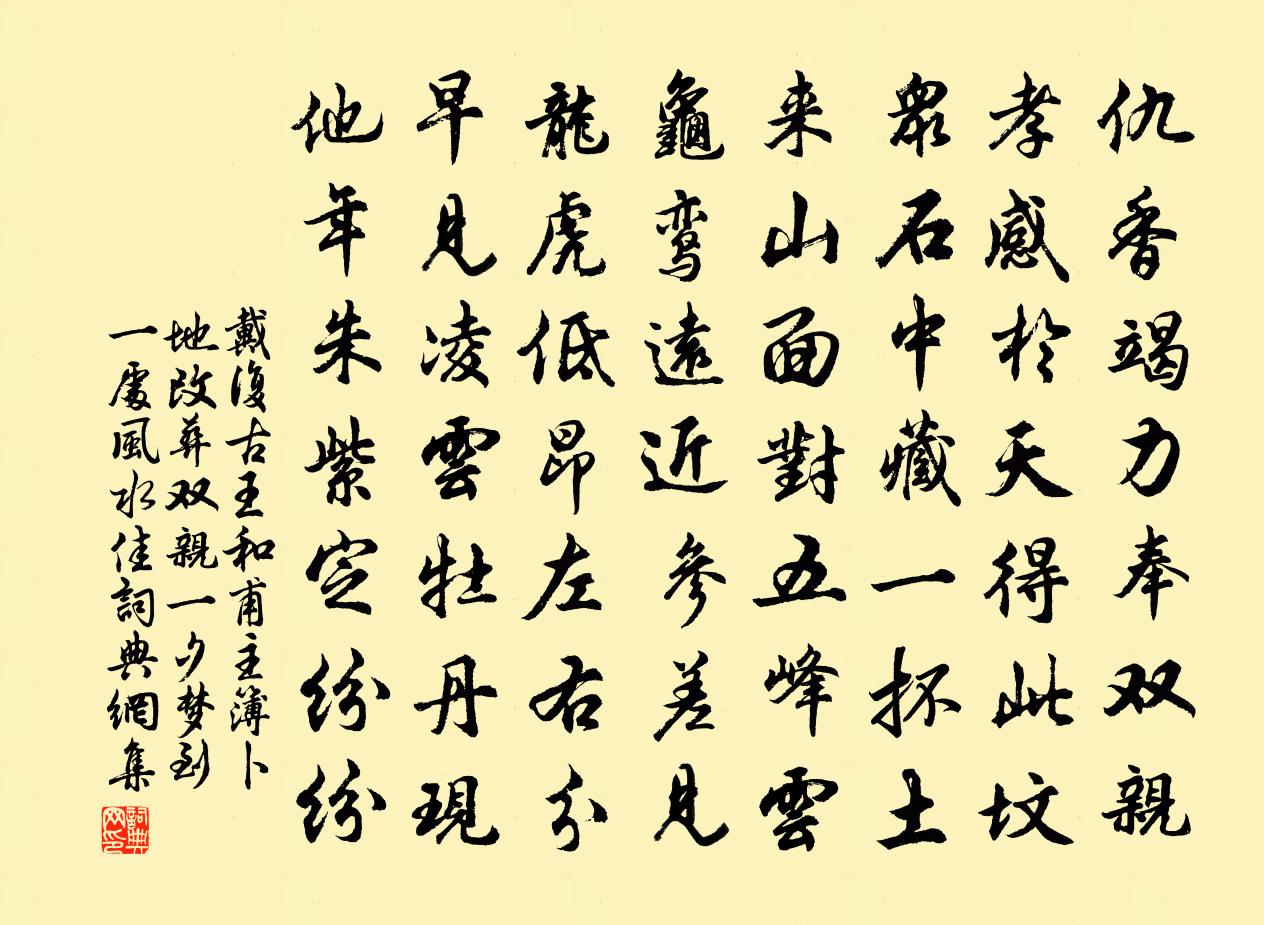 仇香竭力奉双親
孝感於天得此坟
衆石中藏一抔土
来山面對五峰雲
龜鸾遠近參差見
龍虎低昂左右分
早見凌雲牡丹現
他年朱紫定紛紛
戴復古王和甫主簿卜
地改葬双親一夕梦到
一處風水佳詞典網集
詞典
网印